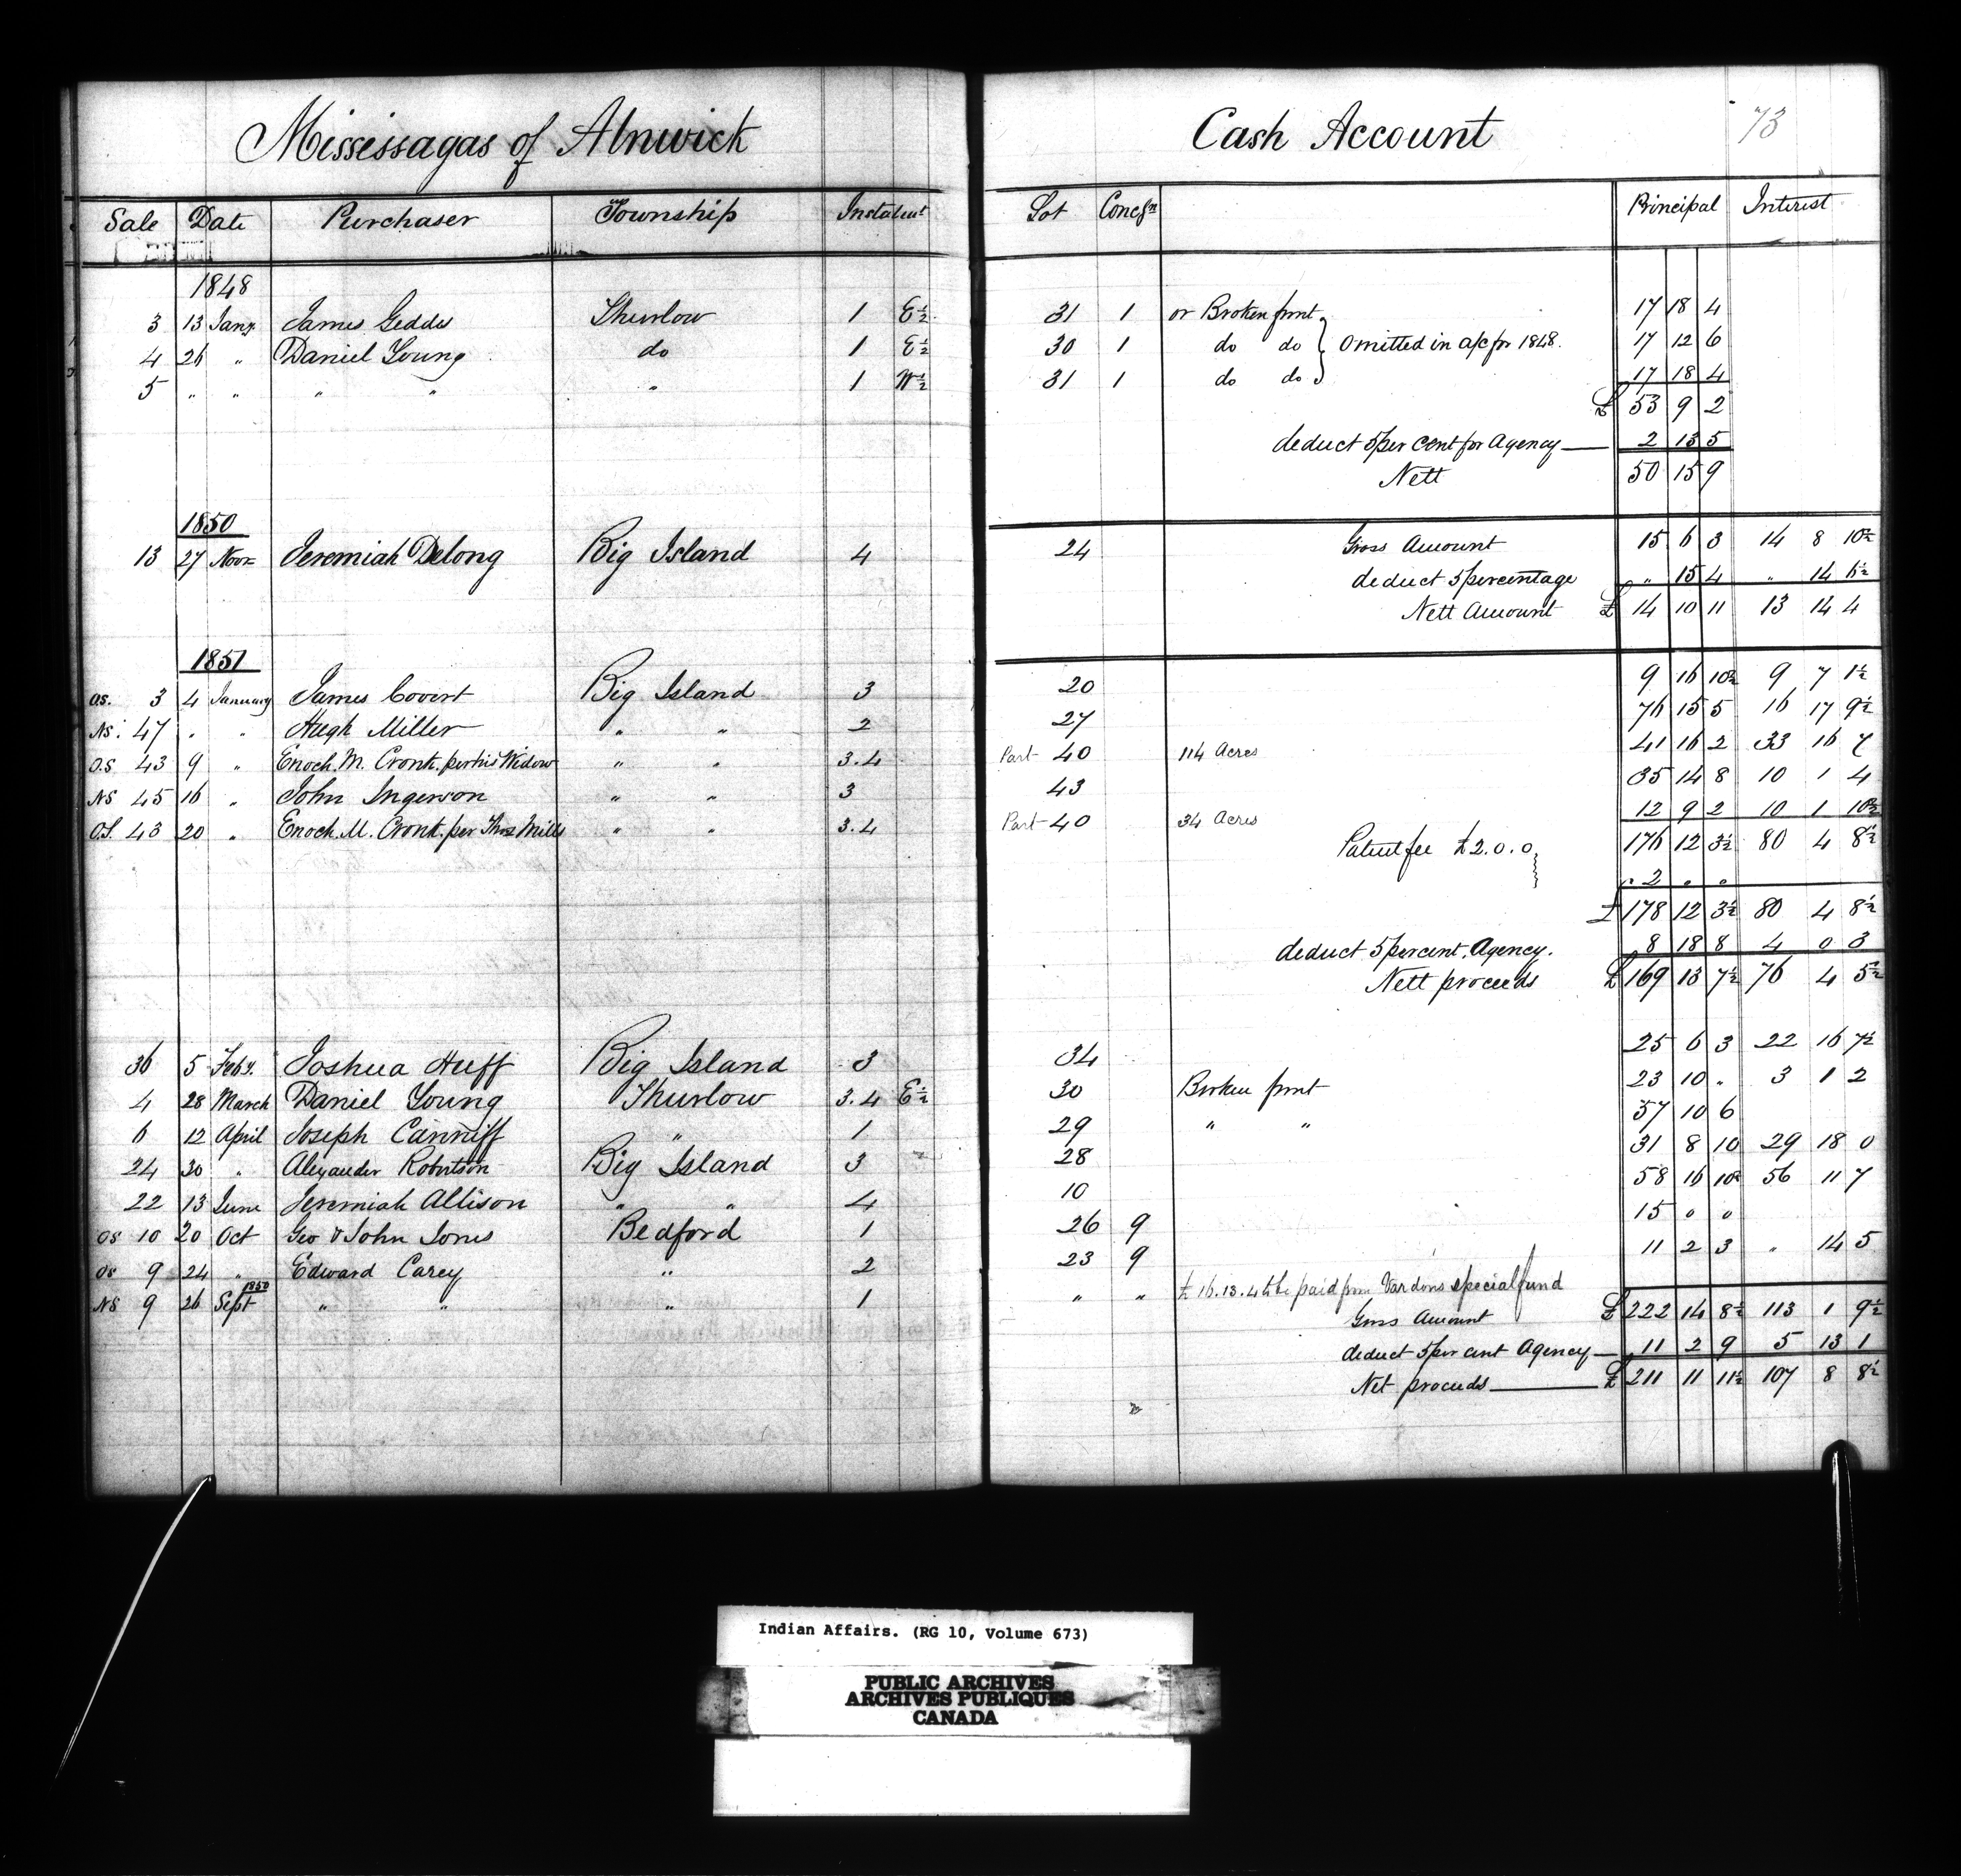 Mississagas of Alnwick Cash Account 73
Sale Date Purchaser Township Instalmt Lot Concsn Principal Interest
1848
3 13 Jany. James Geddes Thurlow 1 E ½ 31 1 or Broken front 17 18 4
4 26 " Daniel Young do 1 E ½ 30 1 do do Omitted in a/c for 1848. 17 12 6
5 " " " " " 1 W ½ 31 1 do do 17 18 4
£ 53 9 2
deduct 5 per Cent for Agency 2 13 5
Nett 50 15 9
1850
13 27 Novr Jeremiah Delong Big Island 4 24 Gross Amount 15 6 3 14 8 10½
deduct 5 percentage " 15 4 " 14 6½
Nett Amount £ 14 10 11 13 14 4
1851
OS. 3 4 January James Covert Big Island 3 20 9 16 10½ 9 7 1½
NS. 47 " " Hugh Miller " " 2 27 76 15 5 16 17 9½
O.S 43 9 " Enoch. M. Cronk. per his Widow " " 3.4 Part 40 114 Acres 41 16 2 33 16 7
NS 45 16 " John Ingerson " " 3 43 35 14 8 10 1 4
O.S. 43 20 " Enoch. M. Cronk. per Thos Mills " " 3.4 Part 40 34 Acres 12 9 2 10 1 10½
Patent fee £2.0.0 176 12 3½ 80 4 8½
. 2 " "
£ 178 12 3½ 80 4 8½
deduct 5 percent. Agency. 8 18 8 4 0 3
Nett proceeds £ 169 13 7½ 76 4 5½
36 5 Feby. Joshua Huff Big Island 3 34 25 6 3 22 16 7½
4 28 March Daniel Young Thurlow 3.4 E ½ 30 Broken front 23 10 " 3 1 2
6 12 April Joseph Canniff " 1 29 " " 57 10 6
24 30 " Alexander Robertson Big Island 3 28 31 8 10 29 18 0
22 13 June Jeremiah Allison " " 4 10 58 16 10½ 56 11 7
OS 10 20 Oct Geo & John Jones Bedford 1 26 9 15 0 0
OS 9 24 " Edward Carey " 2 23 9 11 2 3 " 14 5
NS 9 26 Sept 1850 " " " 1 " " £16.13.4 to be paid from Vardons special fund
Gross Amount £ 222 14 8½ 113 1 9½
deduct 5 per cent Agency 11 2 9 5 13 1
Net proceeds £ 211 11 11½ 107 8 8½
Indian Affairs. (RG 10, Volume 673)
PUBLIC ARCHIVES
ARCHIVES PUBLIQUES
CANADA